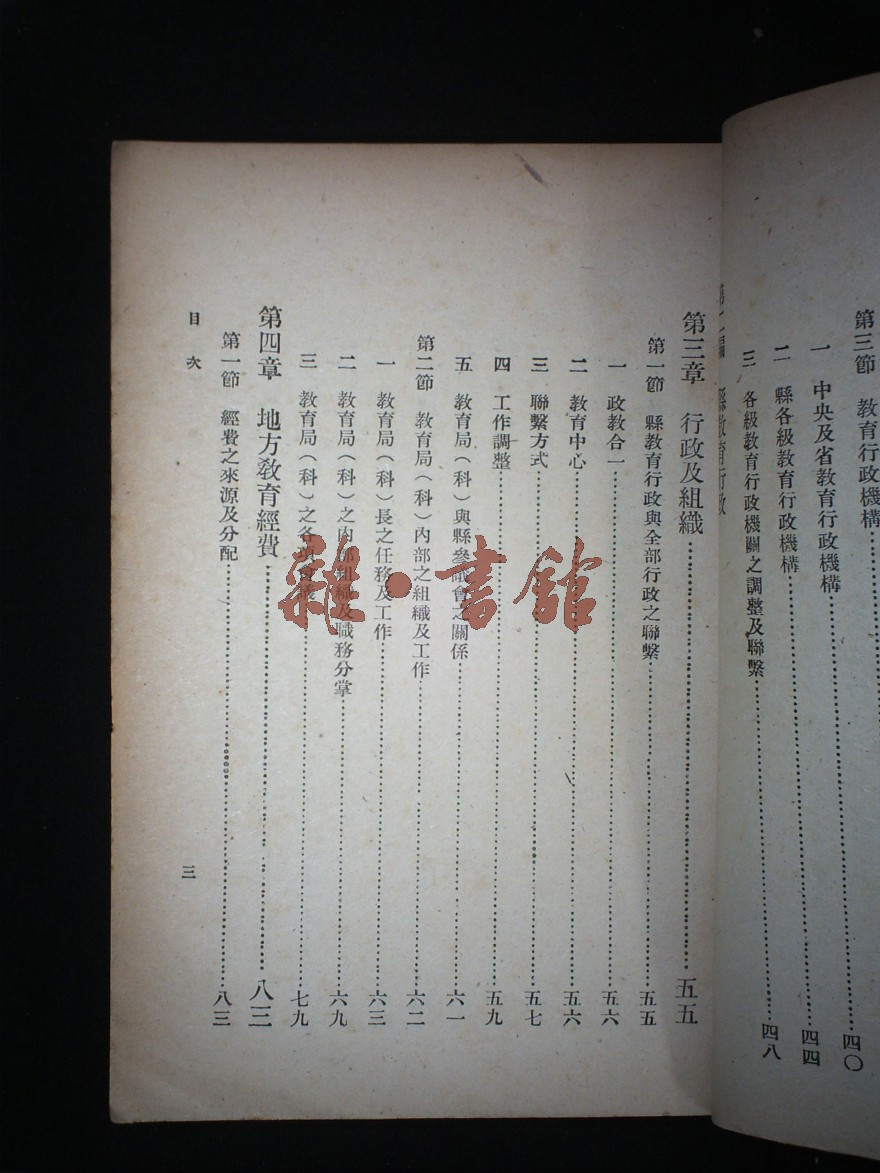 第三節 教育行政機構
一 中央及省教育行政機構……四〇
二 縣各級教育行政機構……四四
三 各級教育行政機關之調整及聯繫……四八
縣教育行政
第三章 行政及組織……五五
第一節 縣教育行政與全部行政之聯繫……五五
一 政教合一……五六
二 教育中心……五六
三 聯繫方式……五七
四 工作調整……五九
五 教育局（科）與縣參議會之關係……六一
第二節 教育局（科）內部之組織及工作……六二
一 教育局（科）長之任務及工作……六三
二 教育局（科）之內部組織及職務分掌……六九
三 教育局（科）之各項會議……七九
第四章 地方教育經費……八三
第一節 經費之來源及分配……八三
目次
三
雜·書館